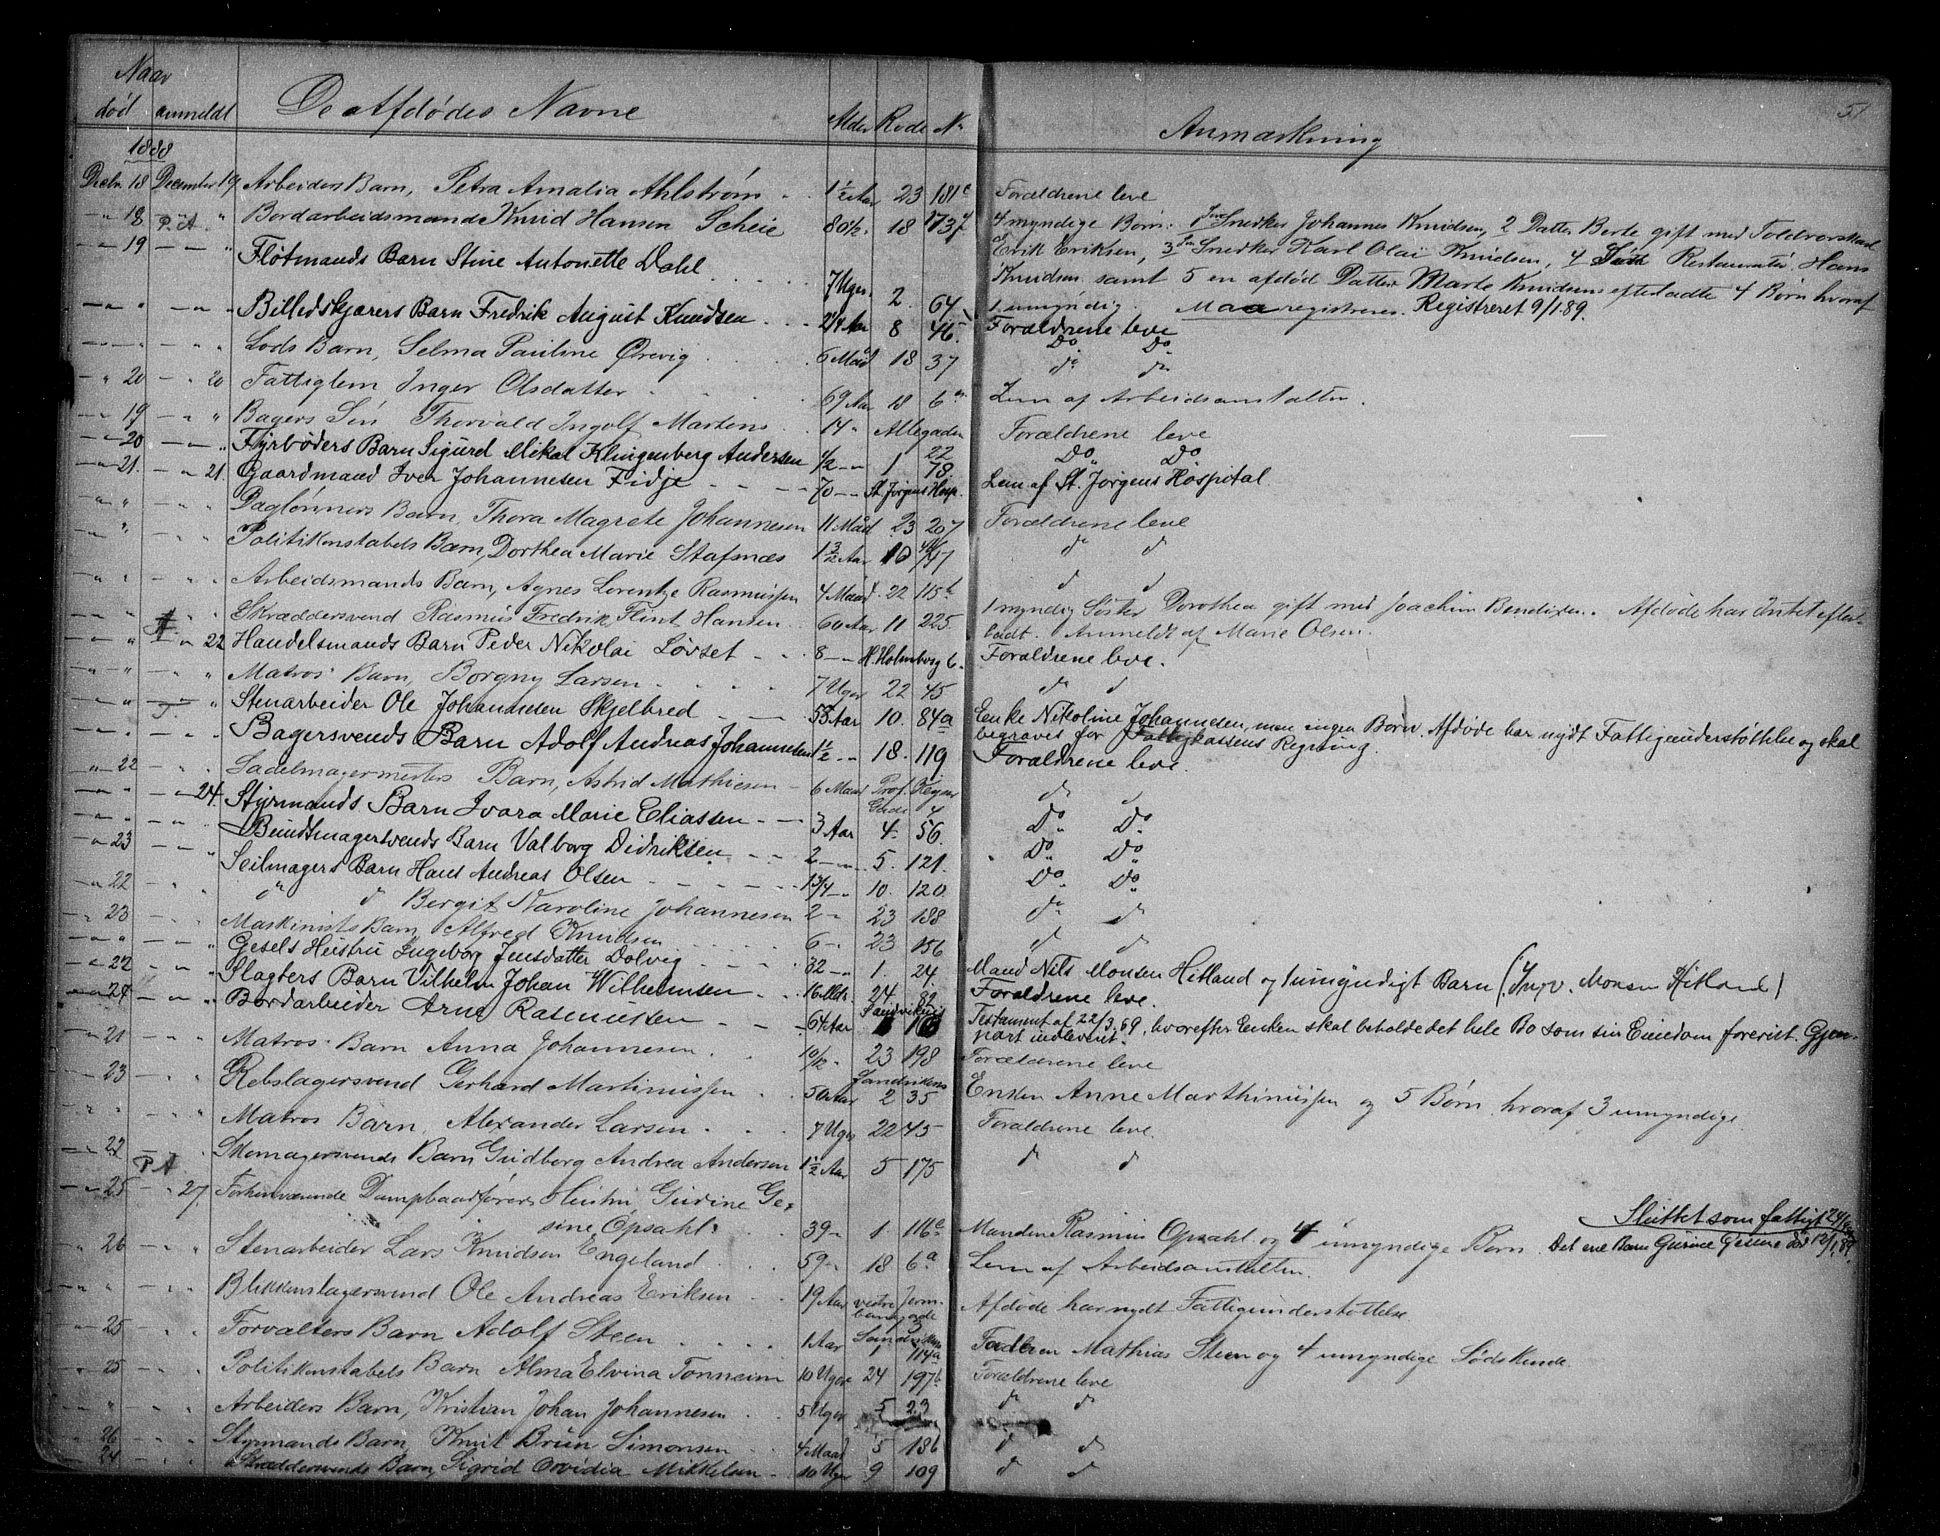 Naar
død anmeldt De Afdødes Navne Alder Rode No Anmærkning 51
1888
Decbr. 18 December 19. Arbeiders Barn, Petra Amalia Ahlstrøm 1½ Aar 23 181c Forældrene leve
" 18 P. A. " Bordarbeidsmand Knud Hansen Scheie 80½. 18 4 myndige Børn: 1 Snedker Johannes Knudsen, 2 Datter Berte gift med
" 19 — — " Fløtmands Barn Stine Antonette Dahl 7 Uger. 2. 64 Erik Eriksen, 3 Snedker Karl Olai Knudsen, 4 Restauratør Hans
Knudsen samt 5 en afdød Datter Marte Knudsens efterladte 4 Børn hvoraf
1 umyndig. Maa registreres. Registreret 9/1 89.
" " — " Billedskjærers Barn Fredrik August Knudsen 2¼ Aar 8 46. Forældrene leve
" " " Lods Barn, Selma Pauline Ørevig 6 Maad 18 37 Do Do
" 20 — " 20 Fattiglem Inger Olsdatter 69 Aar 18 6a Lem af Arbeidsanstalten.
" 19 — " " Bagers Søn Thorvald Ingolf Martens 14 " Allegaden 22 Forældrene leve
" 20 — — " Fyrbøders Barn Sigurd Mikal Klingenberg Andersen ½ — 1 78. Do Do
" 21. — " 21. Gaardmand Iver Johannesen Fidje 70 — St. Jørgens Hosp. Lem af St. Jørgens Hospital.
" " — " " Daglønners Barn, Thora Magrete Johannesen 11 Maad. 23 207 Forældrene leve
" " — " " Politikonstabels Barn, Dorthea Marie Stafsnæs Aar 10 d d
" " — " " Arbeidsmands Barn, Agnes Lorentze Rasmussen 4 Maad. 22 115b d d
" " " Skræddersvend Rasmus Fredrik Flint Hansen 60 Aar 11 225. 1 myndig Søster Dorothea gift med Joachim Bendixen. Afdøde har Intet efter-
ladt. Anmeldt af Marie Olsen.
" " — " 22 Handelsmands Barn Peder Nikolai Løvset 8 — H. Holmberg 6. Forældrene leve.
" " — " " Matros' Barn, Borgny Larsen 7 Uger 22 45 d d
" " " Stenarbeider Ole Johannesen Skjelbred 55 Aar 10. 84a Enke Nikoline Johannesen, men ingen Børn. Afdøde har nydt Fattigunderstøttelse og skal
begraves for Fattigkassens Regning.
" " — " " Bagersvends Barn Adolf Andreas Johannesen 1½ — 18. 119 Forældrene leve.
" 22 — " " Sadelmagermesters Barn, Astrid Mathiesen 6 Maad Prof. Gade 4 d d
" " — " 24. Styrmands Barn Ivara Marie Eliassen 3 Aar 4. 56. Do Do
" " — " " Buntmagersvends Barn Valborg Didriksen 2 — 5. 121. Do Do
" 23 — — " Seilmagers Barn Hans Andreas Olsen 1¾ — 10. 120. Do Do
" 22 — " " " d Bergit Naroline Johannesen 2 " 23 188 d d
" 23 — " " Maskinists Barn, Alfred Knudsen 6 " 23 156 d d
" " — " " Gesels Hustru Ingeborg Jensdatter Dolvig 32 — 1. 24. Mand Nils Monsen Hitland og 1 umyndigt Barn (Ingv. Monsen Hitland)
" 22 — " " Slagters Barn Vilhelm Johan Wilhelmsen 16 Mdr. 24. 82. Forældrene leve.
" 24 — " " Bordarbeider Arne Rasmussen 61½ Aar Sandvikens Testament af 22/3 69, hvorefter Enken skal beholde det hele Bo som sin Eiendom forevist. Gjen-
part indleveret.
" 21 — " " Matros' Barn Anna Johannesen 10/12 23 198 Forældrene leve
" 23 — " " Rebslagersvend Gerhard Martinussen 50 Aar Sandvikens 2 35 Enken Anne Marthinussen og 5 Børn, hvoraf 3 umyndige.
" " — " " Matros Barn, Alexander Larsen 7 Uger 22 45 Forældrene leve.
" 22 — P. A. " Skomagersvends Barn Gudborg Andrea Andersen 1½ Aar 5 175 d d
" 25 — " 27. Forhenværende Dampbaadførers Hustru Gurine Ge-
sine Opsahl 39 " 1. 116a Manden Rasmus Opsahl og 4 umyndige Børn. Det ene Barn Gurine Gesine død 12/1 89. Sluttet som fattigt
" 26 — " " Stenarbeider Lars Knudsen Engeland 59 " 18 6a Lem af Arbeidsanstalten.
" " — " " Blikkenslagersvend Ole Andreas Eriksen 19 Aar vestre Jern-
banegade 3 Afdøde har nydt Fattigunderstøttelse
" 25 — " " Forvalters Barn Adolf Steen 1 Aar Sandviken 1 114a Faderen Mathias Steen og 4 umyndige Sødskende.
" 25 — " " Politikonstabels Barn Alma Elvina Tonheim 10 Uger 24 197b Forældrene leve
" " — " " Arbeiders Barn, Kristian Johan Johannesen 5 Uger 5 23 d d
" 26 — " " Styrmands Barn, Knut Brun Simonsen 4 Maad 5 136 d d
" 24 — " " Skræddersvends Barn, Sigrid Ovidia Mikkelsen 10 Uger 9 109 d d